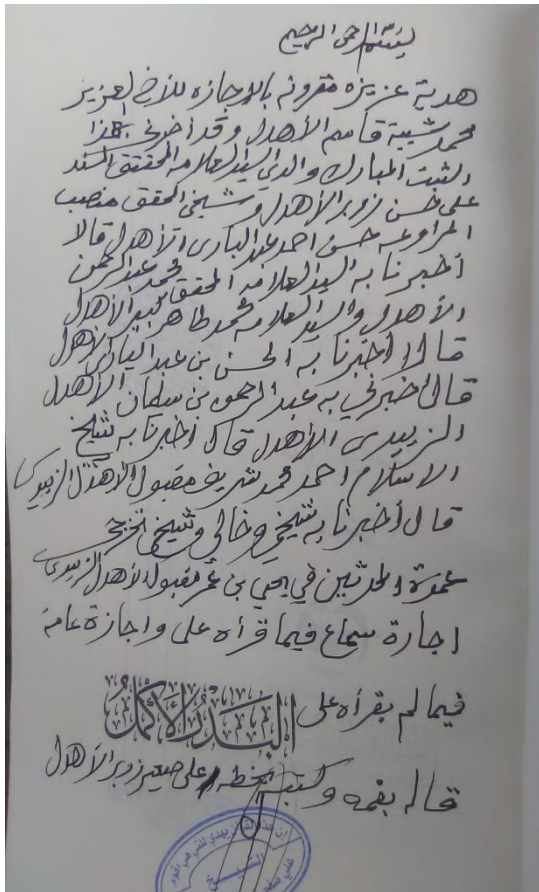 بسم الله الرحمن الرحيم
هدية عزيزه مقرونه بالاجازه للأخ العزيز
محمد شيبة قاسم الأهدل وقد أخبرني بهذا
الثبت المبارك والدي السيد العلامه المحقق المسند
على حسن زوبر الأهدل وشيخي المحقق منصب
المراوعه حسن احمد عبد البارى الأهدل قالا
أخبرنا به السيد العلامه المحقق محمد عبد الرحمن
الأهدل والسيد العلامه محمد طاهر الأهدل
قالا أخبرنا به الحسن بن عبد البارى الأهدل
قال أخبرني به عبد الرحمن بن سليمان الأهدل
الزبيدى الأهدل قال أخبرنا به شيخ
الاسلام احمد محمد شريف مقبول الأهدل الزبيدى
قال أخبرنا به شيخي وخالي وشيخ تخرجي
عمدة المحدثين يحي بن عمر مقبول الأهدل الزبيدى
اجازة سماع فيما قرأه على واجازة عامة
فيما لم يقرأه على البدر الأكمل
قاله بفمه وكتبه بخطه على صغير زوبر الأهدل
إن هذا القرآن يهدي للتي هي أقوم
الشيخ